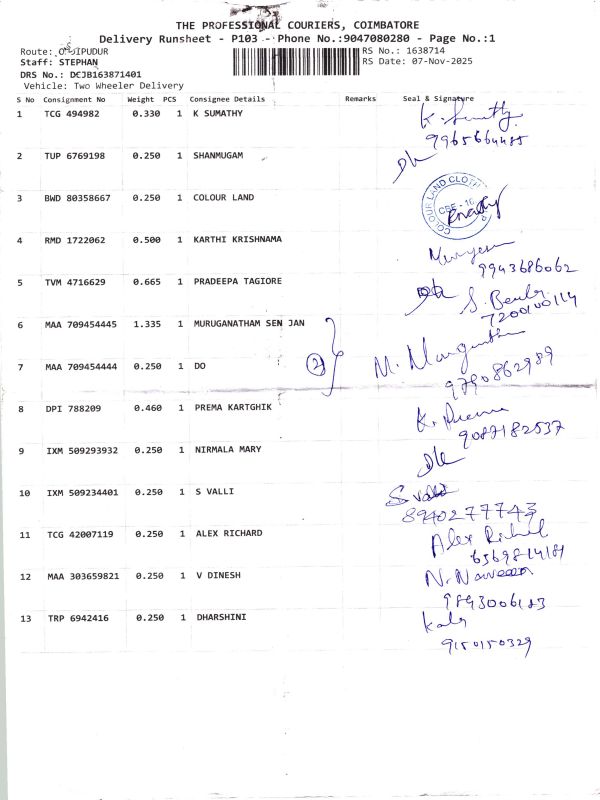 THE PROFESSIONAL COURIERS, COIMBATORE
Delivery Runsheet - P103 - Phone No.:9047080280 - Page No.:1
Route: O IPUDUR
RS No.: 1638714
Staff: STEPHAN
RS Date: 07-Nov-2025
DRS No.: DCJB163871401
Vehicle: Two Wheeler Delivery
S No Consignment No Weight PCS Consignee Details Remarks Seal & Signature
1 TCG 494982 0.330 1 K SUMATHY K. Sumathy
9965664485
2 TUP 6769198 0.250 1 SHANMUGAM
3 BWD 80358667 0.250 1 COLOUR LAND COLOUR LAND CLOTH CBE - 16
4 RMD 1722062 0.500 1 KARTHI KRISHNAMA
9943686062
5 TVM 4716629 0.665 1 PRADEEPA TAGIORE
7200100114
6 MAA 709454445 1.335 1 MURUGANATHAM SEN JAN
7 MAA 709454444 0.250 1 DO 2
9790862989
8 DPI 788209 0.460 1 PREMA KARTGHIK K. Prema
9087182537
9 IXM 509293932 0.250 1 NIRMALA MARY
10 IXM 509234401 0.250 1 S VALLI S valli
8940277743
11 TCG 42007119 0.250 1 ALEX RICHARD Alex
12 MAA 303659821 0.250 1 V DINESH N. Naveen
13 TRP 6942416 0.250 1 DHARSHINI Kala
9150150329